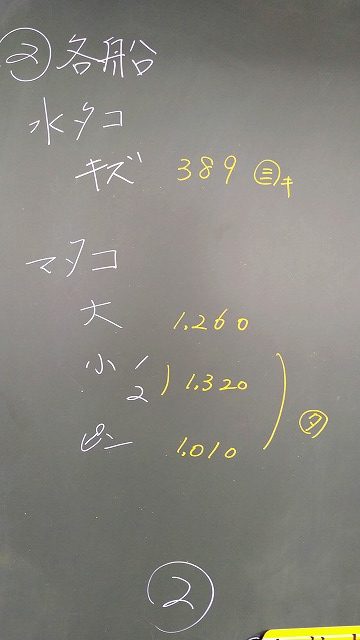 ② 各船
水タコ
キズ 389 ㊂キ
マタコ
大 1.260
小 1/2 ) 1.320
ピン 1.010
㋟
②